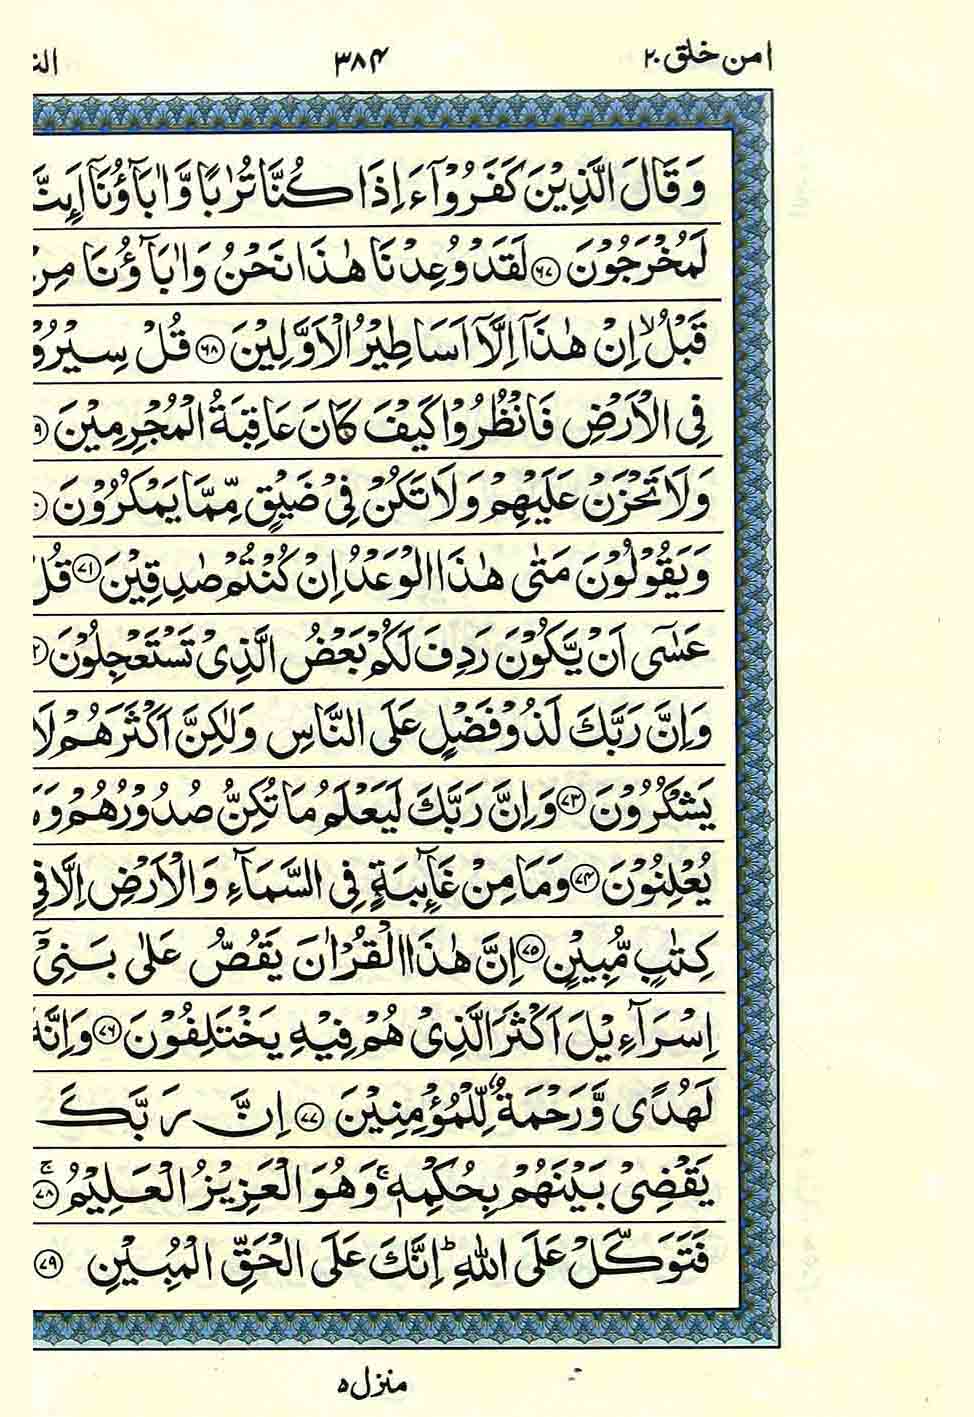 امن خلق ٢٠ ٣٨٤ الن
وَقَالَ الَّذِيْنَ كَفَرُوْۤا ءَاِذَا كُنَّا تُرٰبًا وَّاٰبَآؤُنَاۤ اَىِٕنَّ
لَمُخْرَجُوْنَ ٦٧ لَقَدْ وُعِدْنَا هٰذَا نَحْنُ وَاٰبَآؤُنَا مِنْ
قَبْلُ ۙ اِنْ هٰذَاۤ اِلَّاۤ اَسَاطِيْرُ الْاَوَّلِيْنَ ٦٨ قُلْ سِيْرُوْ
فِى الْاَرْضِ فَانْظُرُوْا كَيْفَ كَانَ عَاقِبَةُ الْمُجْرِمِيْنَ ٩
وَلَا تَحْزَنْ عَلَيْهِمْ وَلَا تَكُنْ فِىْ ضَيْقٍ مِّمَّا يَمْكُرُوْنَ ٠
وَيَقُوْلُوْنَ مَتٰى هٰذَا الْوَعْدُ اِنْ كُنْتُمْ صٰدِقِيْنَ ٧١ قُلْ
عَسٰۤى اَنْ يَّكُوْنَ رَدِفَ لَكُمْ بَعْضُ الَّذِىْ تَسْتَعْجِلُوْنَ ٢
وَاِنَّ رَبَّكَ لَذُوْ فَضْلٍ عَلَى النَّاسِ وَلٰكِنَّ اَكْثَرَهُمْ لَا
يَشْكُرُوْنَ ٧٣ وَاِنَّ رَبَّكَ لَيَعْلَمُ مَا تُكِنُّ صُدُوْرُهُمْ وَمَ
يُعْلِنُوْنَ ٧٤ وَمَا مِنْ غَآىِٕبَةٍ فِى السَّمَآءِ وَالْاَرْضِ اِلَّا فِىْ
كِتٰبٍ مُّبِيْنٍ ٧٥ اِنَّ هٰذَا الْقُرْاٰنَ يَقُصُّ عَلٰى بَنِىْۤ
اِسْرَآءِيْلَ اَكْثَرَ الَّذِىْ هُمْ فِيْهِ يَخْتَلِفُوْنَ ٧٦ وَاِنَّهٗ
لَهُدًى وَّرَحْمَةٌ لِّلْمُؤْمِنِيْنَ ٧٧ اِنَّ رَبَّكَ
يَقْضِىْ بَيْنَهُمْ بِحُكْمِهٖ ۚ وَهُوَ الْعَزِيْزُ الْعَلِيْمُ ۚ ٧٨
فَتَوَكَّلْ عَلَى اللّٰهِ ؕ اِنَّكَ عَلَى الْحَقِّ الْمُبِيْنِ ٧٩
منزل ٥